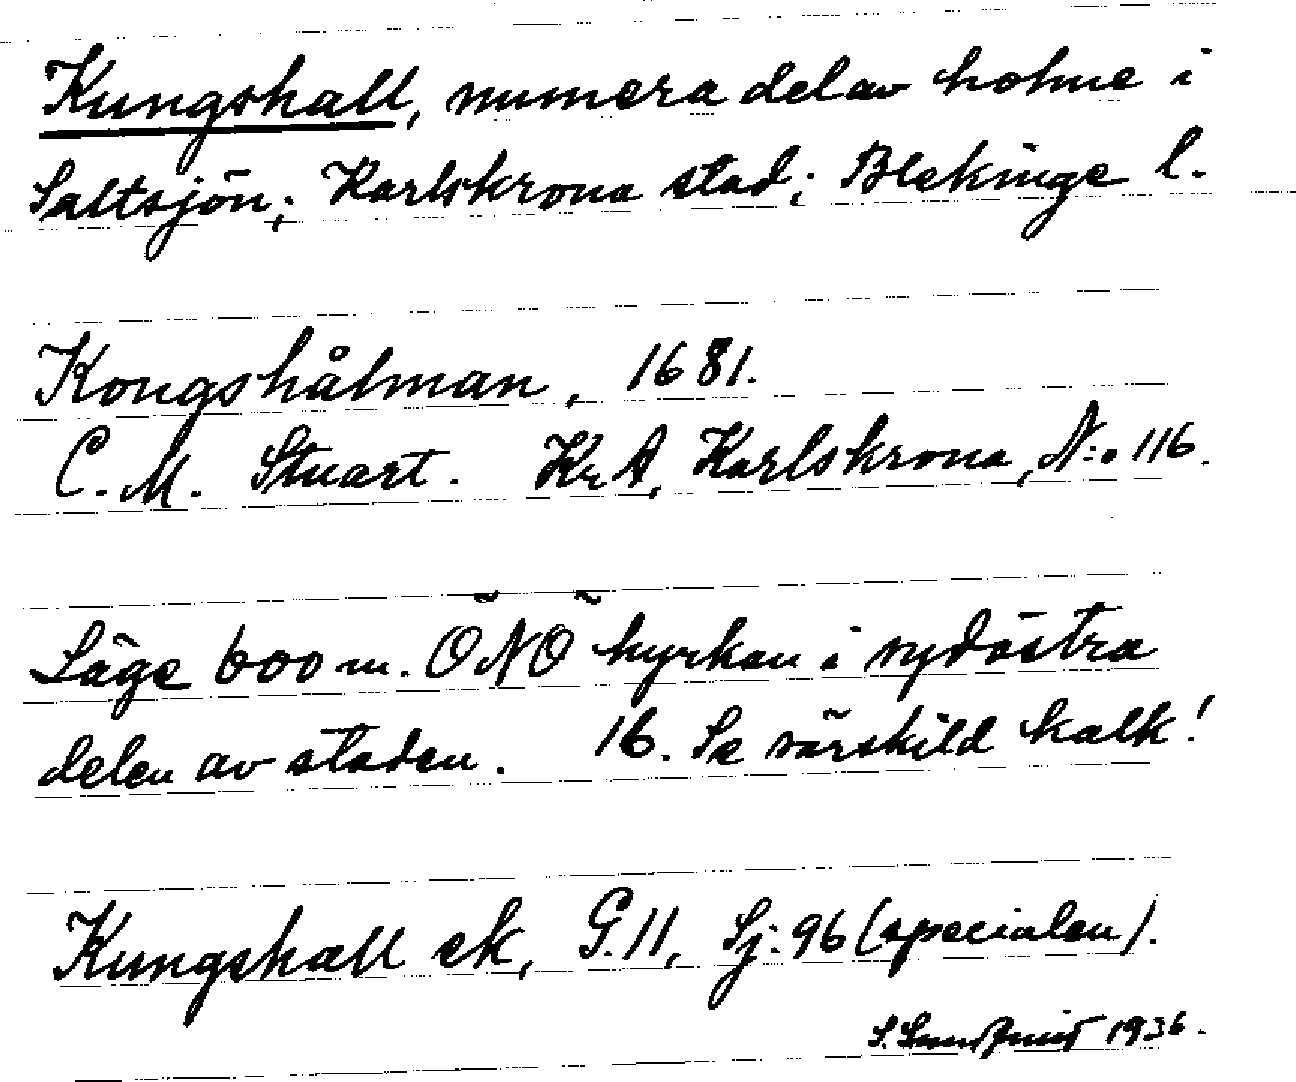 Kungshall, numera del av holme i
Saltsjön; Karlskrona stad; Blekinge l.
Kongshålman, 1681.
C. M. Stuart. Kr A, Karlskrona, N:o 116.
Läge 600 m. ÖNÖ kyrkan i sydöstra
delen av staden. 16. Se särskild kalk!
Kungshall ek, G. 11, Sj: 96 (specialen).
S. 1936.